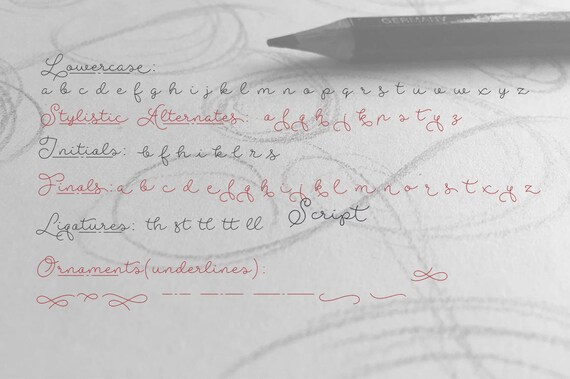 GERMANY
Lowercase:
a b c d e f g h i j k l m n o p q r s t u v w x y z
Stylistic Alternates: a f g h j k p s t y z
Initials: b f h i k l r s
Finals: a b c d e f g h i j k l m n o r s t x y z
Ligatures: th st tl tt ll Script
Ornaments(underlines):